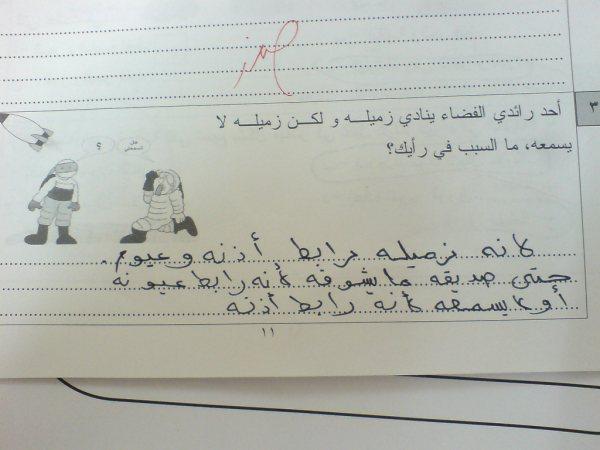 ٣
أحد رائدي الفضاء ينادي زميله و لكن زميله لا
يسمعه، ما السبب في رأيك؟
هل تسمعني
؟
لانه زميله رابط أذنه و عيونه.
حتى صديقه ما يشوفه لأنه رابط عيونه
أو ما يسمعه لأنه رابط أذنه
١١